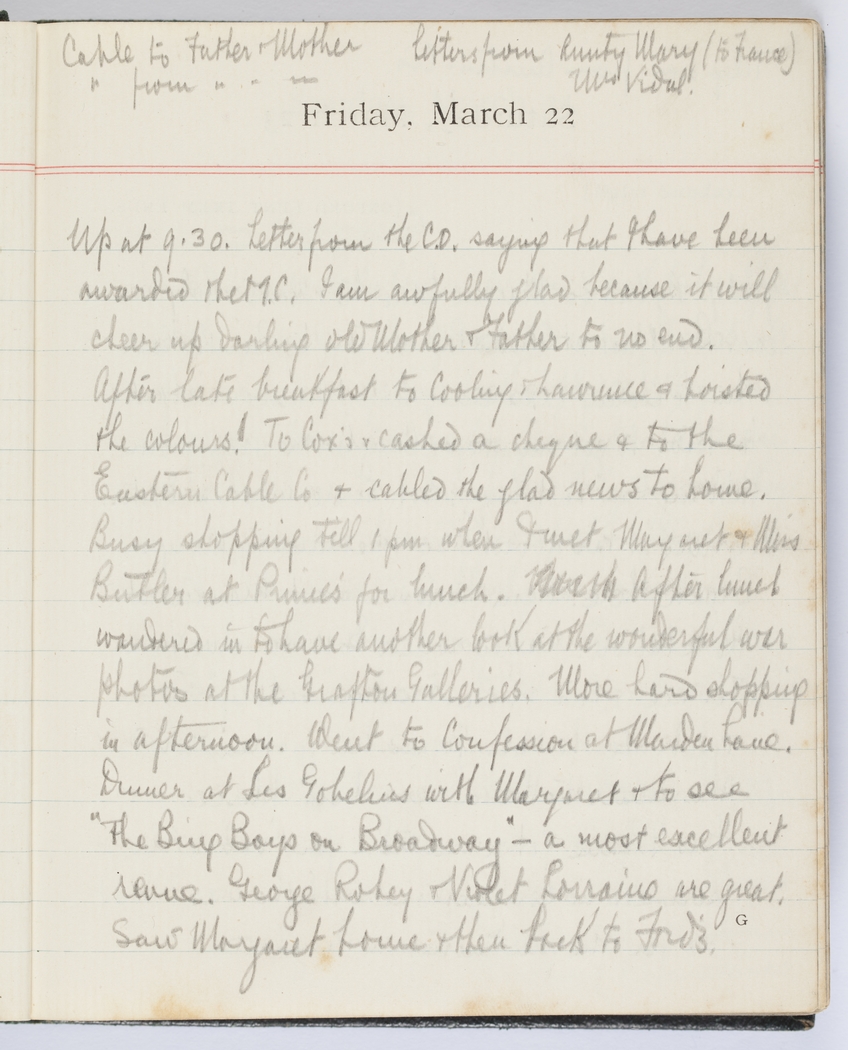 Cable to Father & Mother Letters from Aunty Mary (to France)
" from " " " Mrs Vidal.
Friday, March 22
Up at 9.30. Letter from the C.O. saying that I have been
awarded the M.C. I am awfully glad because it will
cheer up darling old Mother & Father to no end.
After late breakfast to Cooling & Lawrence & hoisted
the colours! To Cox's & cashed a cheque & to the
Eastern Cable Co & cabled the glad news to home.
Busy shopping till 1 pm when I met Margaret & Miss
Butler at Prince's for lunch. After lunch
wandered in to have another look at the wonderful war
photos at the Grafton Galleries. More hard shopping
in afternoon. Went to Confession at Maiden Lane.
Dinner at Les Gobelins with Margaret & to see
"The Bing Boys on Broadway" – a most excellent
revue. George Robey & Violet Lorraine are great.
Saw Margaret home & then back to Ford's.
G